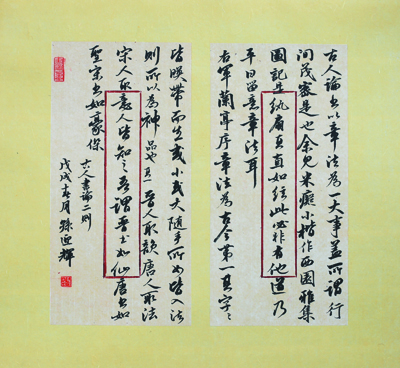 古人論書以章法為一大事蓋所謂行
間茂密是也余見米癡小楷作西園雅集
圖記是紈扇其直如弦此必非有他道乃
平日留意章法耳
右軍蘭亭序章法為古今第一其字〻
皆映帶而生或小或大隨手所如皆入法
則所以為神品也晋人取韻唐人取法
宋人取意人皆知之吾謂晋書如仙唐書如
聖宋書如豪
古人書論二則
戊戌月孫迎輝